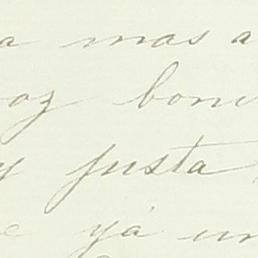 a mas a
oz bon
y justa
e yá un